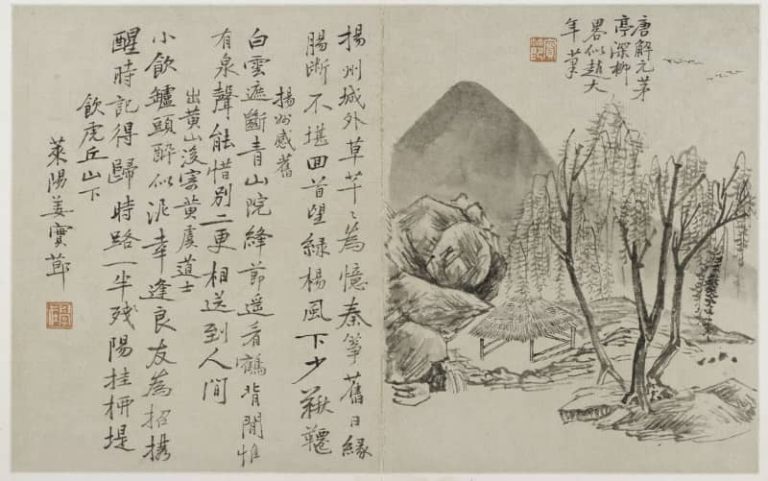 唐解元茅
亭深柳
畧似趙大
年筆
揚州城外草芊〻為憶秦箏舊日緣
腸斷不堪回首望綠楊風下少鞦韆
揚州感舊
白雲遮斷青山院絳節遥看鶴背閒惟
有泉聲能惜別二更相送到人間
出黃山後寄黃虞道士
小飲鑪頭醉似泥幸逢良友為招携
醒時記得歸時路一半残陽挂柳堤
飲虎丘山下
萊陽姜實節